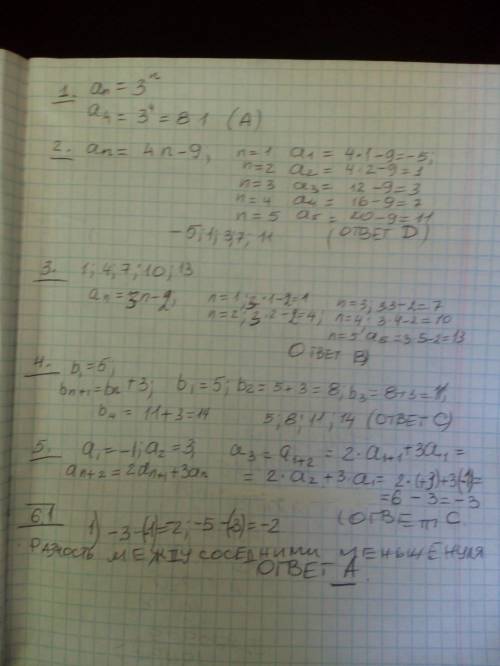 1. aₙ = 3ⁿ
a₄ = 3⁴ = 81 (A)
2. aₙ = 4n-9, n=1 a₁ = 4·1-9=-5;
n=2 a₂ = 4·2-9=1
n=3 a₃ = 12-9=3
n=4 a₄ = 16-9=7
n=5 a₅ = 20-9=11
-5;1;3;7; 11 (ОТВЕТ D)
3. 1; 4; 7; 10; 13
aₙ=3n-2, n=1; 3·1-2=1 n=3; 3·3-2=7
n=2; 3·2-2=4; n=4; 3·4-2=10
n=5 a₅=3·5-2=13
ОТВЕТ B)
4. b₁=5;
bₙ₊₁=bₙ+3; b₁=5; b₂=5+3=8; b₃=8+3=11,
b₄= 11+3=14 5; 8; 11; 14 (ОТВЕТ C)
5. a₁=-1; a₂=3, a₃=a₁₊₂=2·a₁₊₁+3a₁=
aₙ₊₂=2aₙ₊₁+3aₙ =2·a₂+3·a₁=2·(+3)+3(-1)=
=6-3=-3
6.1 (ОТВЕТ C
1) -3-(-1)=-2; -5-(-3)=-2
РАЗНОСТЬ МЕЖДУ СОСЕДНИМИ МЕНЬШЕ НУЛЯ
ОТВЕТ A